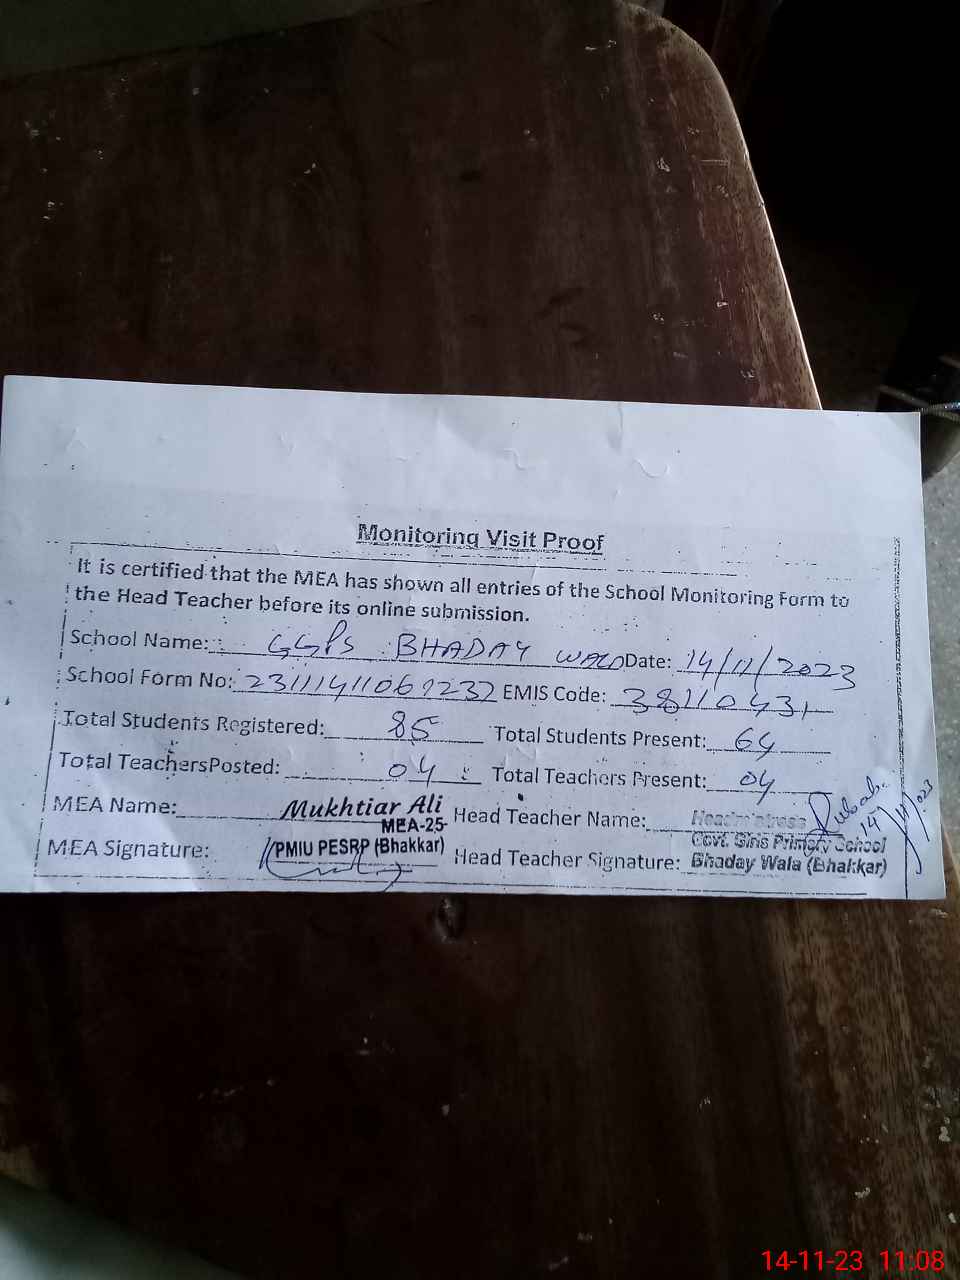 Monitoring Visit Proof
It is certified that the MEA has shown all entries of the School Monitoring Form to
the Head Teacher before its online submission.
School Name: GGPS BHADAY WALA Date: 14/11/2023
School Form No: EMIS Code: 38110431
Total Students Registered: 85 Total Students Present: 64
Total TeachersPosted: 04 Total Teachers Present: 04
MEA Name: Mukhtiar Ali Head Teacher Name: Headmistress
MEA-25 Govt. Girls Primary School
MEA Signature: PMIU PESRP (Bhakkar) Head Teacher Signature: Bhaday Wala (Bhakkar)
14/11/023
14-11-23 11:08